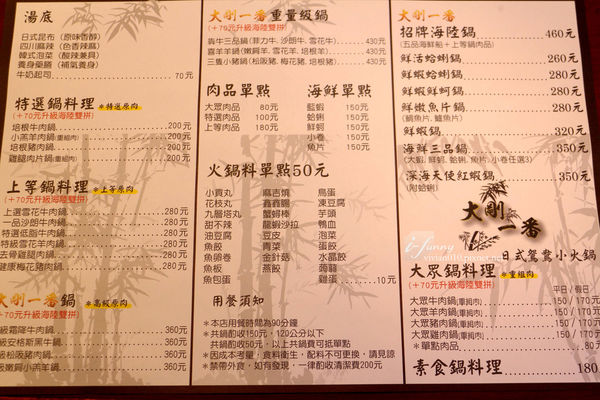 湯底
日式昆布 (原味香醇)
四川麻辣 (色香辣麻)
韓式泡菜 (酸辣兼具)
養身藥膳 (補氣養身)
牛奶起司 70元
特選鍋料理 *特選原肉
(+70元升級海陸雙拼)
培根牛肉鍋 200元
小羔羊肉鍋(重組肉) 200元
培根豬肉鍋 200元
雞腿肉片鍋(重組肉) 200元
上等鍋料理 *上等原肉
(+70元升級海陸雙拼)
上選雪花牛肉鍋 280元
一品沙朗牛肉鍋 280元
特選低脂牛肉鍋 280元
特級雪花羊肉鍋 280元
去骨雞腿肉鍋 280元
健康梅花豬肉鍋 280元
大剛一番鍋 *高級原肉
+70元升級海陸雙拼)
級霜降牛肉鍋 360元
級安格斯黑牛鍋 360元
級松阪豬肉鍋 360元
級嫩肩小羔羊鍋 360元
大剛一番重量級鍋
(+70元升級海陸雙拼)
犇牛三品鍋 (菲力牛, 沙朗牛, 雪花牛) 430元
喜羊羊鍋 (嫩肩羊, 雪花羊, 培根羊) 430元
三隻小豬鍋 (松阪豬, 梅花豬, 培根豬) 430元
肉品單點
大眾肉品 80元
特選肉品 100元
上等肉品 180元
海鮮單點
藍蝦 150元
小卷 150元
鮮蚵 150元
蛤蜊 150元
魚片 150元
火鍋料單點50元
小貢丸 麻吉燒 鳥蛋
花枝丸 鑫鑫腸 凍豆腐
九層塔丸 蟹婦棒 芋頭
甜不辣 龍蝦沙拉 鴨血
油豆腐 豆皮 油條
魚餃 青菜 蛋餃
魚卵卷 金針菇 水晶餃
魚板 燕餃 蒟蒻
魚包蛋 雞蛋 10元
用餐須知
*本店用餐時間為90分鐘
*共鍋酌收150元, 120公分以下
共鍋酌收50元, 以上共鍋費可抵單點
*因成本考量, 食料衛生, 配料不可更換, 請見諒
*禁帶外食, 如有發現, 一律酌收清潔費200元
大剛一番
招牌海陸鍋 460元
(五品海鮮船+上等鍋肉品)
鮮活蛤蜊鍋 260元
鮮蝦蛤蜊鍋 280元
鮮蝦鮮蚵鍋 280元
鮮嫩魚片鍋 280元
(鯛魚片, 鱸魚片)
鮮蝦鍋 320元
海鮮三品鍋 350元
(大蝦, 鮮蚵, 蛤蜊, 魚片, 小卷任選3)
深海天使紅蝦鍋 350元
(附蛤蜊)
大剛一番
日式鴛鴦小火鍋
i-Funny
vivian0103.pixnet.net
大眾鍋料理 *重組肉
(+70元升級海陸雙拼)
平日 / 假日
大眾牛肉鍋(重組肉) 150 / 170元
大眾羊肉鍋(重組肉) 150 / 170元
大眾豬肉鍋(重組肉) 150 / 170元
大眾雞肉鍋(重組肉) 150 / 170元
*單點肉品 80元
素食鍋料理 180